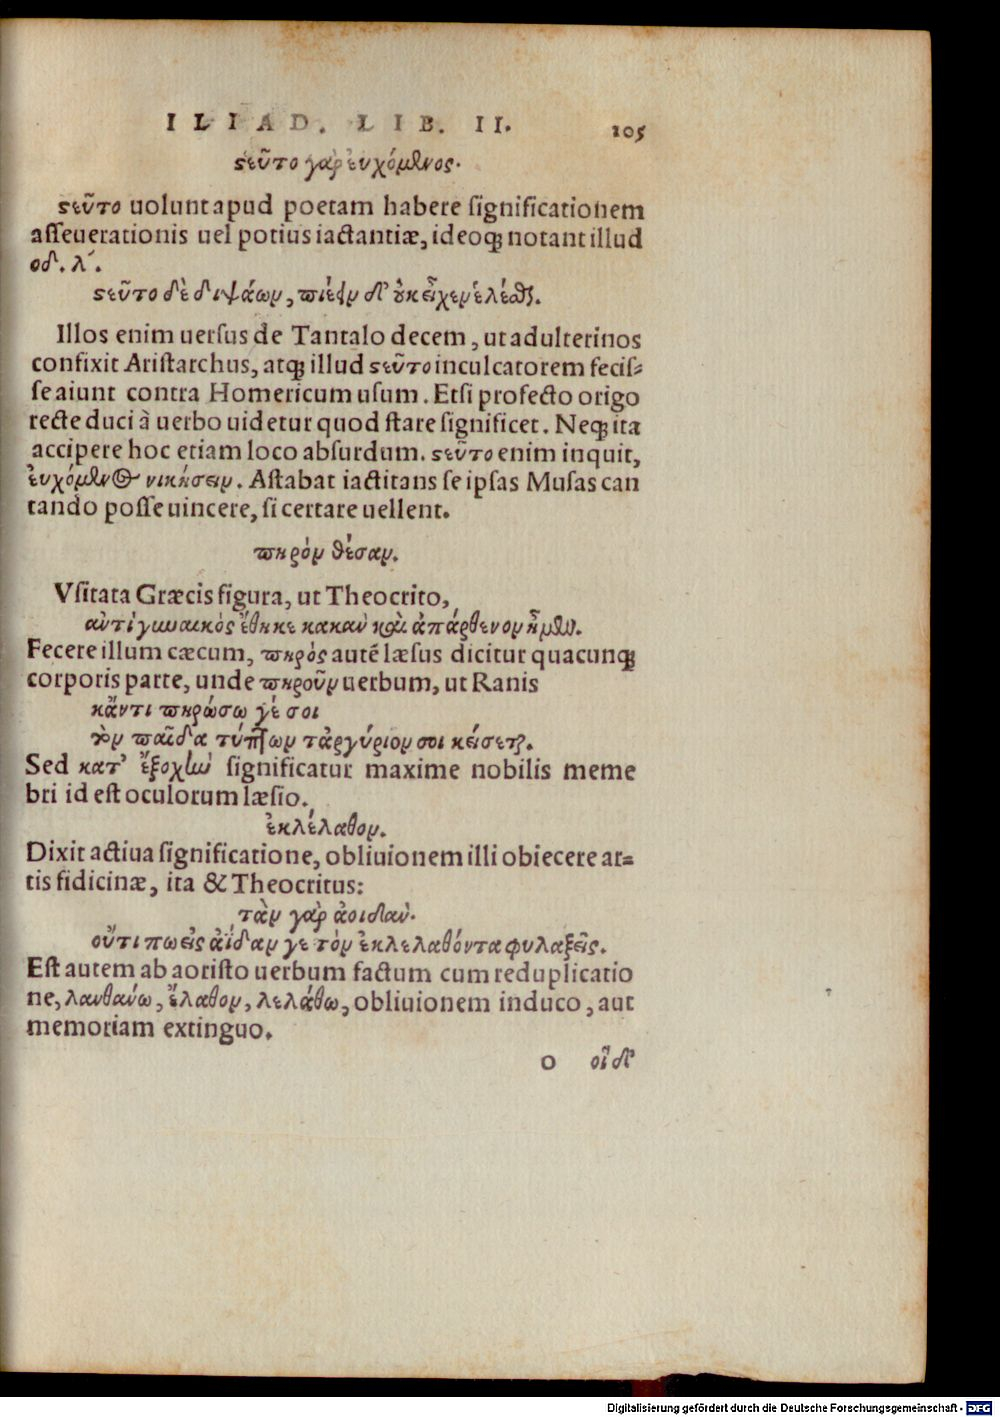 ILIAD. LIB. II. 105
ϛεῦτο γὰρ εὐχόμενος.
ϛεῦτο uolunt apud poetam habere significationem
asseuerationis uel potius iactantiæ, ideoqꝫ notant illud
οδ. λ´.
ϛεῦτο δὲ διψάων, πιέειν δ' οὐκ εἶχεν ἑλέσθαι.
Illos enim uersus de Tantalo decem, ut adulterinos
confixit Aristarchus, atqꝫ illud ϛεῦτο inculcatorem fecis-
se aiunt contra Homericum usum. Etsi profecto origo
recte duci à uerbo uidetur quod stare significet. Neqꝫ ita
accipere hoc etiam loco absurdum. ϛεῦτο enim inquit,
εὐχόμενος νικήσειν. Astabat iactitans se ipsas Musas can
tando posse uincere, si certare uellent.
πηρὸν θέσαν.
Vsitata Græcis figura, ut Theocrito,
ἀντὶ γυναικὸς ἔθηκε κακὰν καὶ ἀπάρθενον ἦμεν.
Fecere illum cæcum, πηρὸς autē læsus dicitur quacunqꝫ
corporis parte, unde πηροῦν uerbum, ut Ranis
κἄν τι πηρώσω γέ σοι
τὸν παῖδα τύπτων τἀργύριον σοι κείσεται.
Sed κατ' ἐξοχὴν significatur maxime nobilis meme
bri id est oculorum læsio.
ἐκλέλαθον.
Dixit actiua significatione, obliuionem illi obiecere ar-
tis fidicinæ, ita & Theocritus:
τὰν γὰρ ἀοιδὰν.
οὔτι πω εἰς ἀΐδαν γε τὸν ἐκλελαθόντα φυλαξεῖς.
Est autem ab aoristo uerbum factum cum reduplicatio
ne, λανθάνω, ἔλαθον, λελάθω, obliuionem induco, aut
memoriam extinguo.
o οἳ δ'
Digitalisierung gefördert durch die Deutsche Forschungsgemeinschaft - DFG